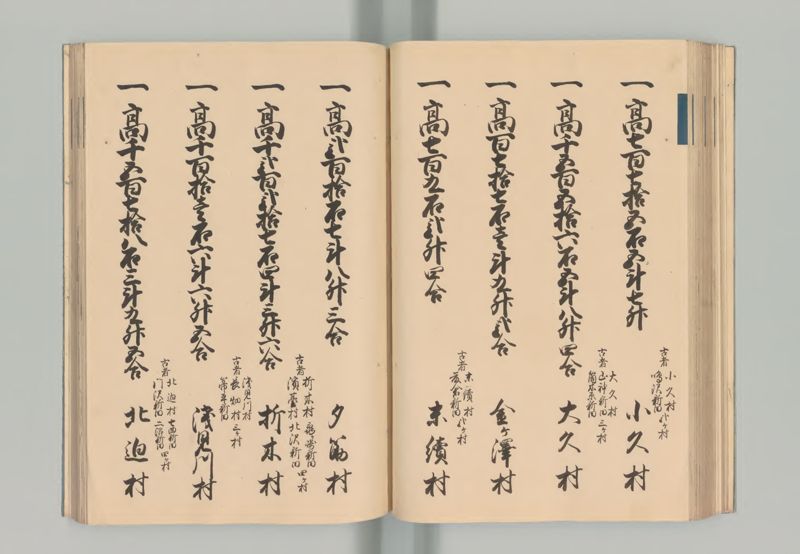 一高七百七拾五石五斗七升
古者 小久村
新田 弐ヶ村
小久村
一高千五百五拾六石五斗八升四合
古者 大久村
山神新田 三ヶ村
新田
大久村
一高百七拾七石壱斗九升弐合
金ヶ澤村
一高七百九石弐升四合
古者 末續村
新田 弐ヶ村
末續村
一高弐百拾石七斗八升三合
夕筋村
一高千弐百弐拾七石四斗三升六合
古者 折木村 新田
村 北沢新田 四ヶ村
折木村
一高千百拾壱石六斗六升五合
浅見川村
古者 長畑村 三ヶ村
新田
浅見川村
一高千五百七拾八石三斗九升五合
古者 北迫村 七曲新田
門沢新田 二沼新田 四ヶ村
北迫村